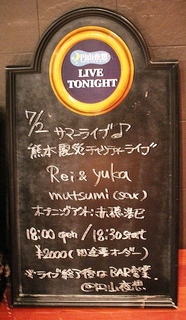 円山夜想
LIVE
TONIGHT
7/2 サマーライブ♪
熊本震災チャリティーライブ
Rei & yuka
mutsumi (sax)
オープニングアクト:斉藤
18:00 open / 18:30 start
¥2000 (別途要オーダー)
※ライブ終了後はBAR営業
@円山夜想